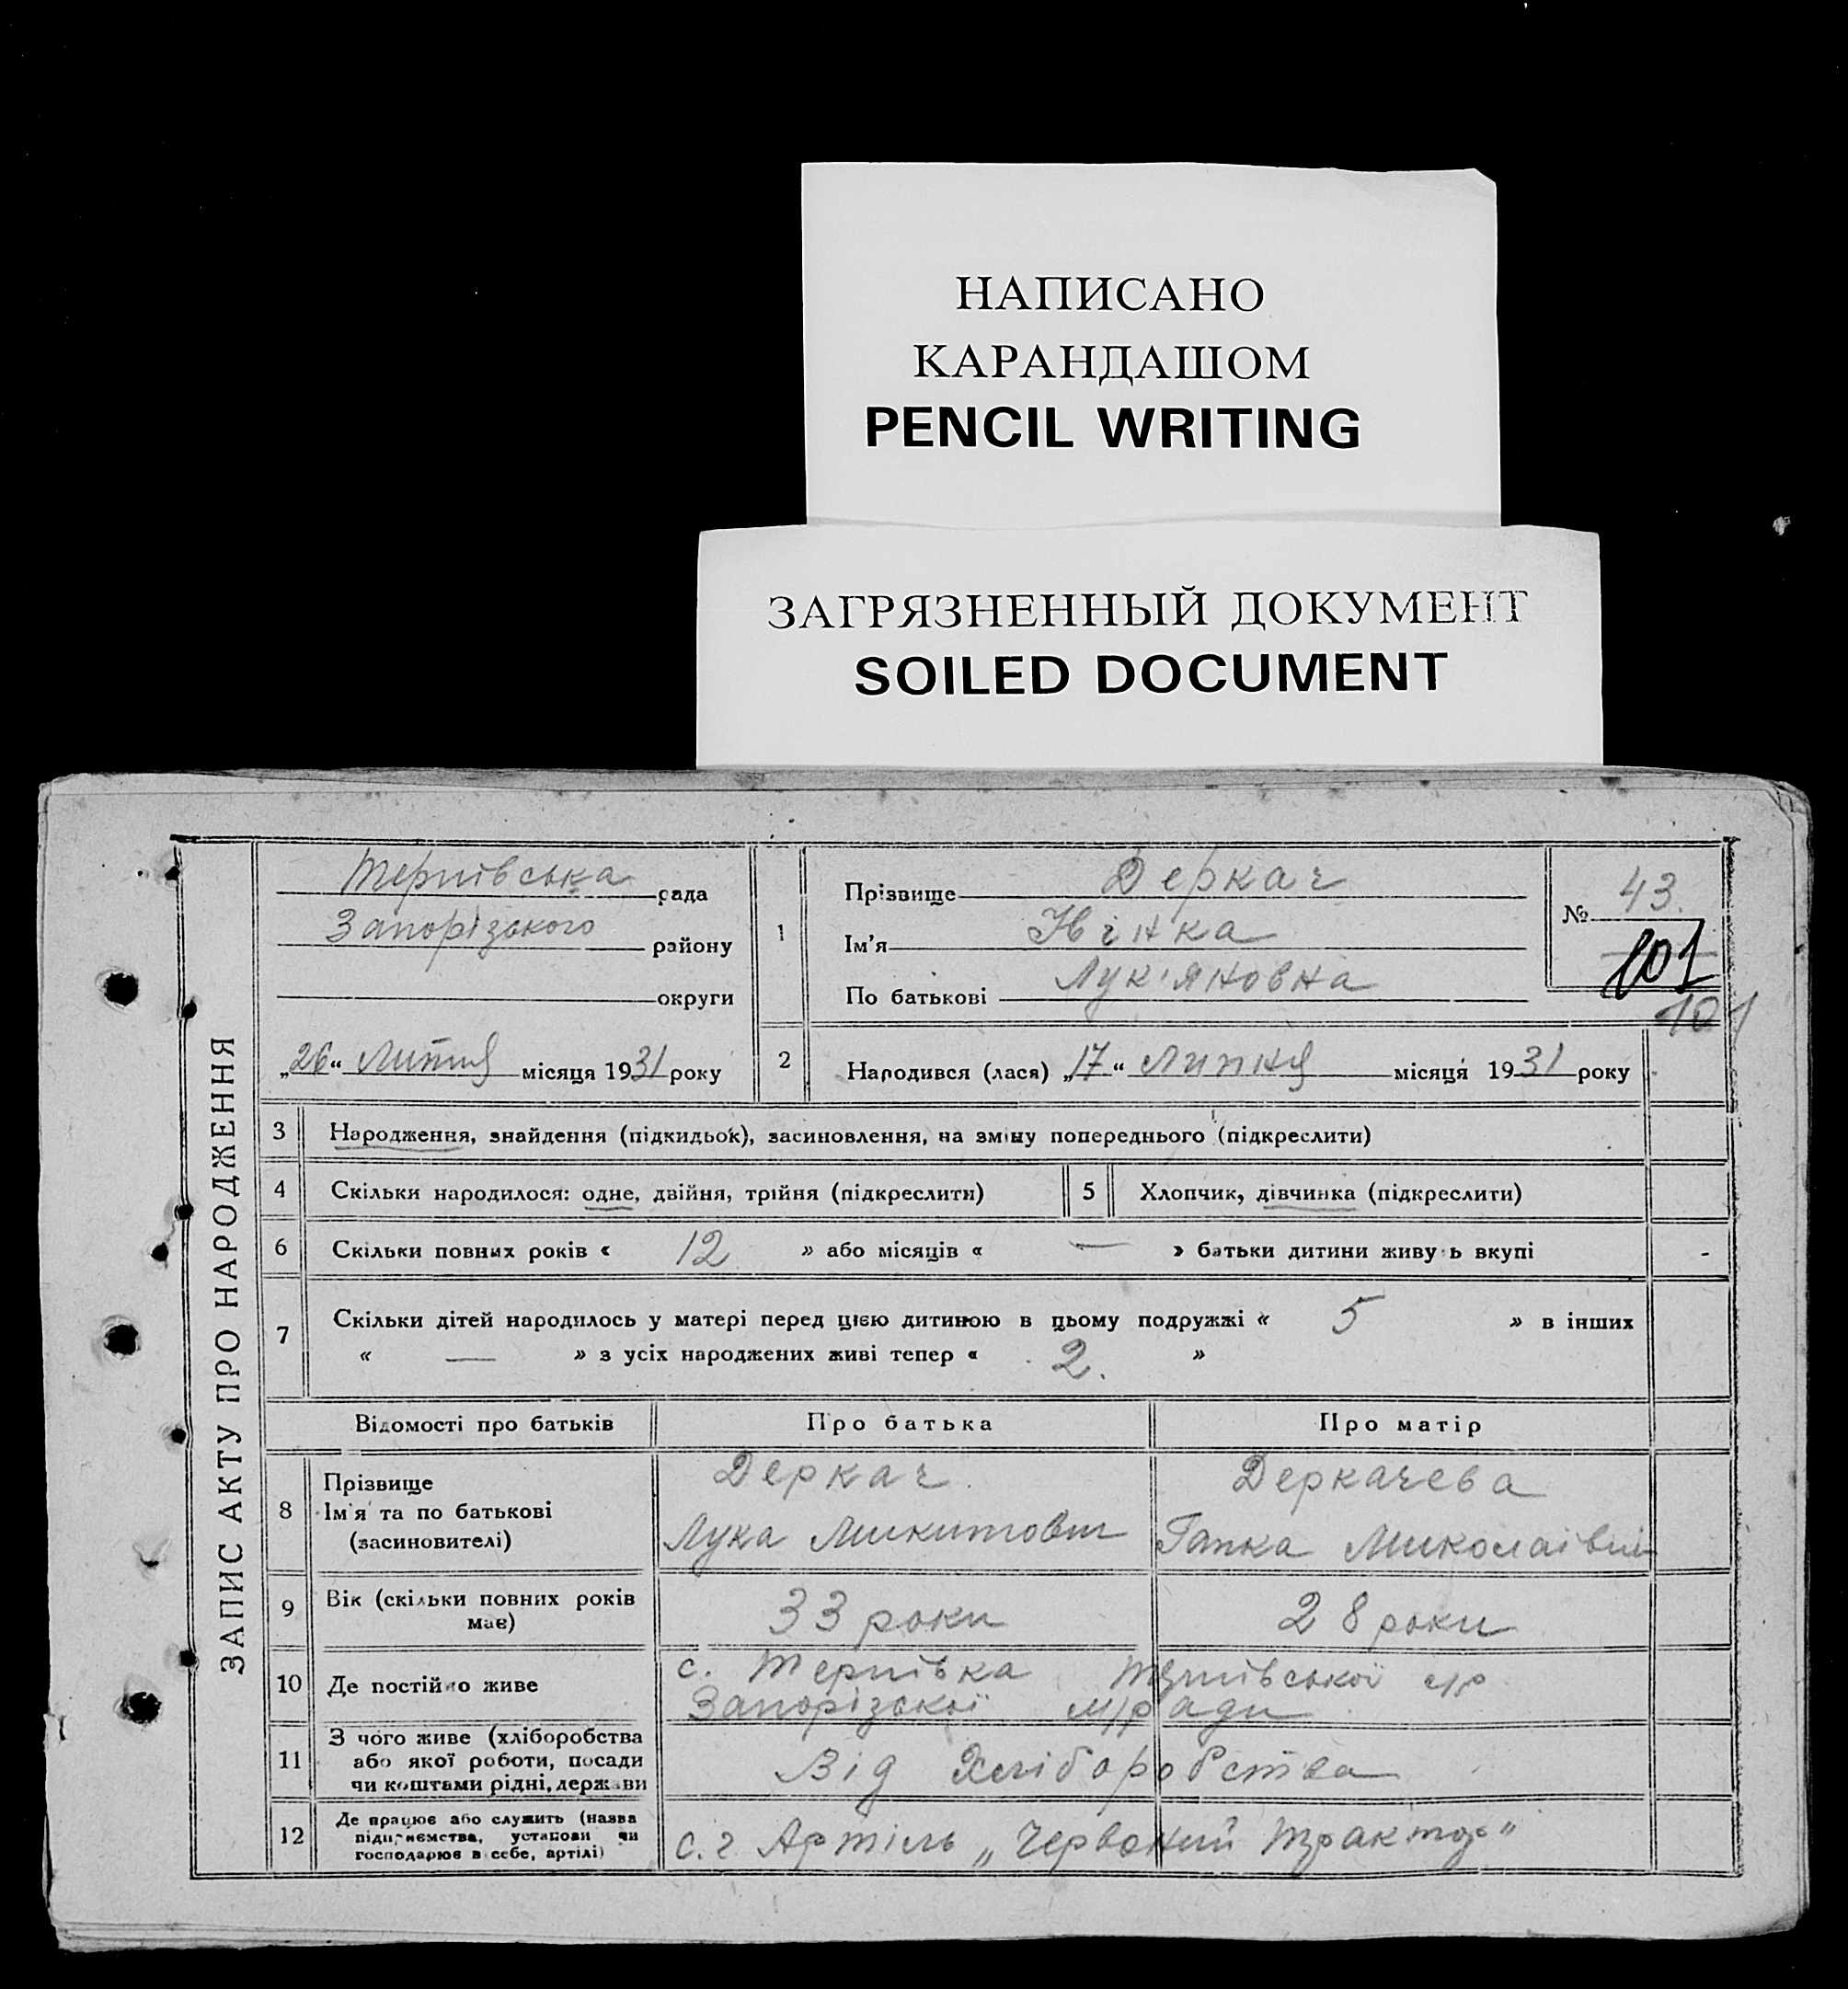 НАПИСАНО
КАРАНДАШОМ
PENCIL WRITING
ЗАГРЯЗНЕННЫЙ ДОКУМЕНТ
SOILED DOCUMENT
ЗАПИС АКТУ ПРО НАРОДЖЕННЯ
Терпівська рада
Запорізького району
округи
„26“ Липня місяця 1931 року
1
Прізвище Деркач
Ім'я Нінка
По батькові Лук'яновна
№ 43.
101
101
2 Народився (лася) „17“ Липня місяця 1931 року
3 Народження, знайдення (підкидьок), засиновлення, на зміну попереднього (підкреслити)
4 Скільки народилося: одне, двійня, трійня (підкреслити) 5 Хлопчик, дівчинка (підкреслити)
6 Скільки повних років « 12 » або місяців « — » батьки дитини живуть вкупі
7 Скільки дітей народилось у матері перед цією дитиною в цьому подружжі « 5 » в інших
« — » з усіх народжених живі тепер « 2. »
Відомості про батьків Про батька Про матір
8 Прізвище Деркач Деркачева
Ім'я та по батькові Лука Микитович Гапка Миколаївна
(засиновителі)
9 Вік (скільки повних років має) 33 роки 28 роки
10 Де постійно живе с. Терпівка Терпівської с/р
Запорізької м/ради
11 З чого живе (хліборобства
або якої роботи, посади Від Хліборобства
чи коштами рідні, держави
12 Де працює або служить (назва
підприємства, установи чи с. г Артіль „Червоний Трактор“
господарює в себе, артілі)